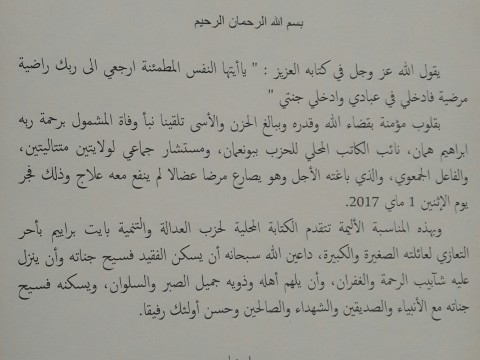 بسم الله الرحمان الرحيم
يقول الله عز وجل في كتابه العزيز : " ياأيتها النفس المطمئنة ارجعي الى ربك راضية
مرضية فادخلي في عبادي وادخلي جنتي "
بقلوب مؤمنة بقضاء الله وقدره وببالغ الحزن والأسى تلقينا نبأ وفاة المشمول برحمة ربه
ابراهيم همان، نائب الكاتب المحلي للحزب ببونعمان، ومستشار جماعي لولايتين متتاليتين،
والفاعل الجمعوي، والذي باغته الأجل وهو يصارع مرضا عضالا لم ينفع معه علاج وذلك فجر
يوم الإثنين 1 ماي 2017.
وبهذه المناسبة الأليمة تتقدم الكتابة المحلية لحزب العدالة والتنمية بايت براييم بأحر
التعازي لعائلته الصغيرة والكبيرة، داعين الله سبحانه أن يسكن الفقيد فسيح جناته وأن ينزل
عليه شآبيب الرحمة والغفران، وأن يلهم أهله وذويه جميل الصبر والسلوان، ويسكنه فسيح
جناته مع الأنبياء والصديقين والشهداء والصالحين وحسن أولئك رفيقا.